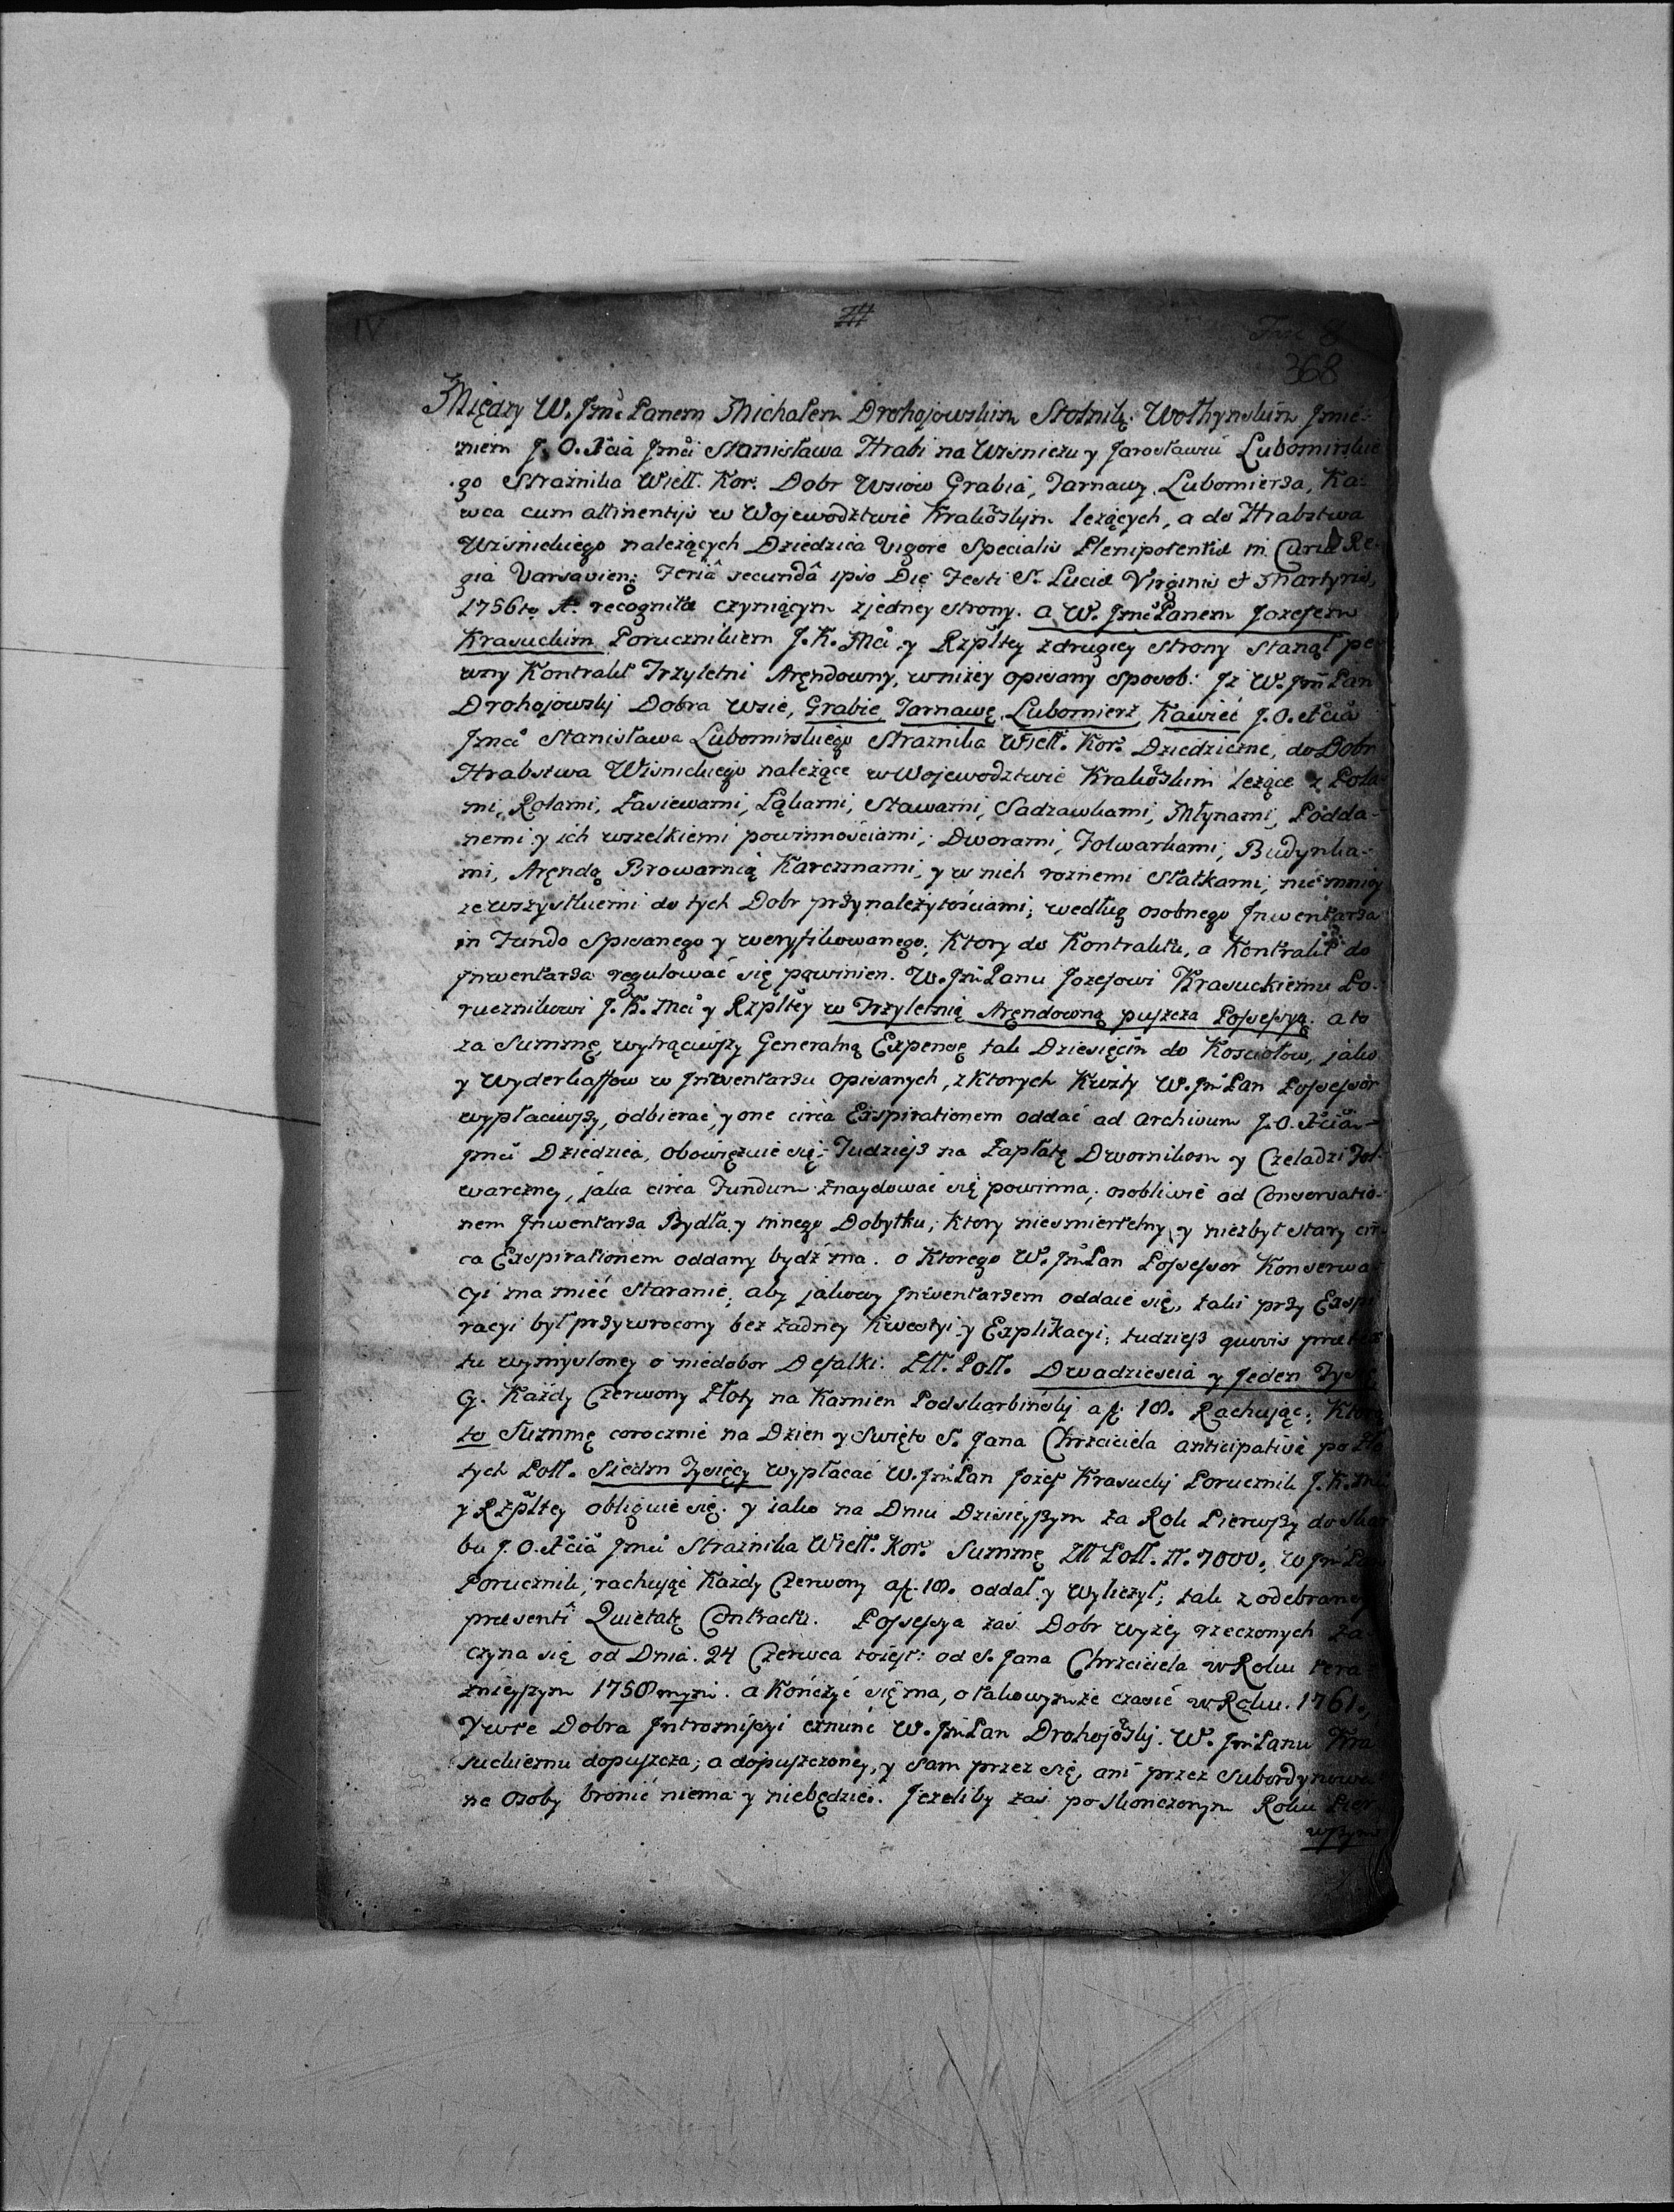 IV
368
Między W. Jmć Panem Michałem Drohojowskim Stolnikę. Wołhynskim Jmie-
niem J. O. Xcia Jmći Stanisława Hrabi na Wiśniczu y Jarosławiu Lubomirskie
go Strażnika Wiell. Kor. Dobr Wsiow Grabia, Tarnawy, Lubomierza, Ka-
wca cum attinentijs w Wojewodztwie Krakoskym leżących, a do Hrabstwa
Wiśnickiego należących Dziedzica vigore Specialis Plenipotentiæ in Curia Re-
gia Varsavien: Feriâ secundâ ipso Die Festi S. Luciæ Virginis et Martyris,
1756to A. recognitæ czyniącym z jedney strony. a W. Jmć Panem Jozefem
Krasuckim Porucznikiem J. K. Mći y Rzpltey z drugiey strony stanął pe
wny Kontrakt Trzyletni Arędowny, w niżey opisany sposob: Jż W. Jm Pan
Drohojowskj Dobra Wsie, Grabie, Tarnawę, Lubomierz, Kawiec J. O. Xcia
Jmći Stanisława Lubomirskiego Strażnika Wiell. Kor. Dziedziczne, do Dobr
Hrabstwa Wiśnickiego należące w Wojewodztwie Krakoskim leżące z Pola-
mi, Rolami, Zasiewami, Łąkami, Stawami, Sadzawkami, Młynami, Podda-
nemi y ich wszelkiemi powinnościami, Dworami, Folwarkami, Budynka-
mi, Arędą Browarnią Karczmami, y w nich roznemi Statkami, niemniey
ze wszystkiemi do tych Dobr przynależytościami; według osobnego Jnwentarza
in Fundo Spisanego y weryfikowanego; Ktory do Kontraktu, a Kontrakt do
Jnwentarza regulować się powinien. W. Jm Panu Jozefowi Krasuckiemu Po-
rucznikowi J. K. Mći y Rzpltey w Trzyletnią Arędowną puszcza Possessyą; a to
za Summę, wytrąciwszy Generalną Expensę tak Dziesięcin do Kosciołow, jako
y Wyderkaffow w Jnwentarzu opisanych, z Ktorych Kwity W. Jm Pan Possessor
wypłaciwszy, odbierać, y one circa Exspirationem oddać ad Archivum J. O. Xcia
Jmći Dziedzica, obowięzuie się; Tudziesz na Zapłatę Dwornikom y Czeladzi Fol-
warczney, jaka circa Fundum znaydować się powinna; osobliwie ad Conservatio-
nem Jnwentarza Bydła y innego Dobytku, Ktory niesmiertelny y niezbyt stary cir-
ca Exspirationem oddany bydź ma. o Ktorego W. Jm Pan Possessor Konserwa-
cyi ma mieć staranie, aby jakowy Jnwentarzem oddaie się, taki przy Exspi
racyi był przywrocony bez żadney Kwestyi y Explikacyi; tudziesz quovis prætex
tu wymysloney o niedobor Defalki: Zll. Poll. Dwadziescia y Jeden Tysię
cy. Każdy Czerwony Złoty na Kamien Podskarbiński a fl. 18. Rachując; Ktorą
to Summę corocznie na Dzien y Swięto S. Jana Chrzciciela anticipative po Zło
tych Poll. Siedm Tysięcy wypłacać W. Jm Pan Jozef Krasuckj Porucznik J. K. Mći
y Rzpltey obliguie się. y iako na Dniu Dzisieyszym za Rok Pierwszy do Skar
bu J. O. Xcia Jmći Strażnika Wiell. Kor. Summę Zll Poll. N. 7000, W Jm Pan
Porucznik, rachując Każdy Czerwony a fl. 18. oddał y wyliczył; tak z odebraney
præsenti Quietatę Contractu. Possessya zaś Dobr wyżey rzeczonych za-
czyna się od Dnia 24 Czerwca toiest: od S. Jana Chrzciciela w Roku tera-
znieyszym 1758mym. a Kończyć się ma, o takowymże czasie w Roku. 1761.
Y w te Dobra Jntromissyi W. Jm Pan Drohojoskj. W. Jm Panu Kra
suckiemu dopuszcza; a dopuszczoney, y sam przez się, ani przez Subordynowa
ne Osoby bronić niema y niebędzie. Jezeliby zaś po skonczonym Roku Pier
wszym